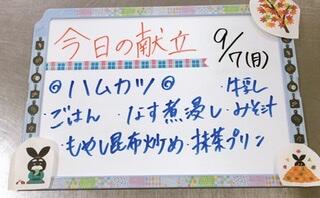 今日の献立 9/7(月)
◎ハムカツ◎ ・牛乳
・ごはん ・なす煮浸し・みそ汁
・もやし昆布炒め・抹茶プリン